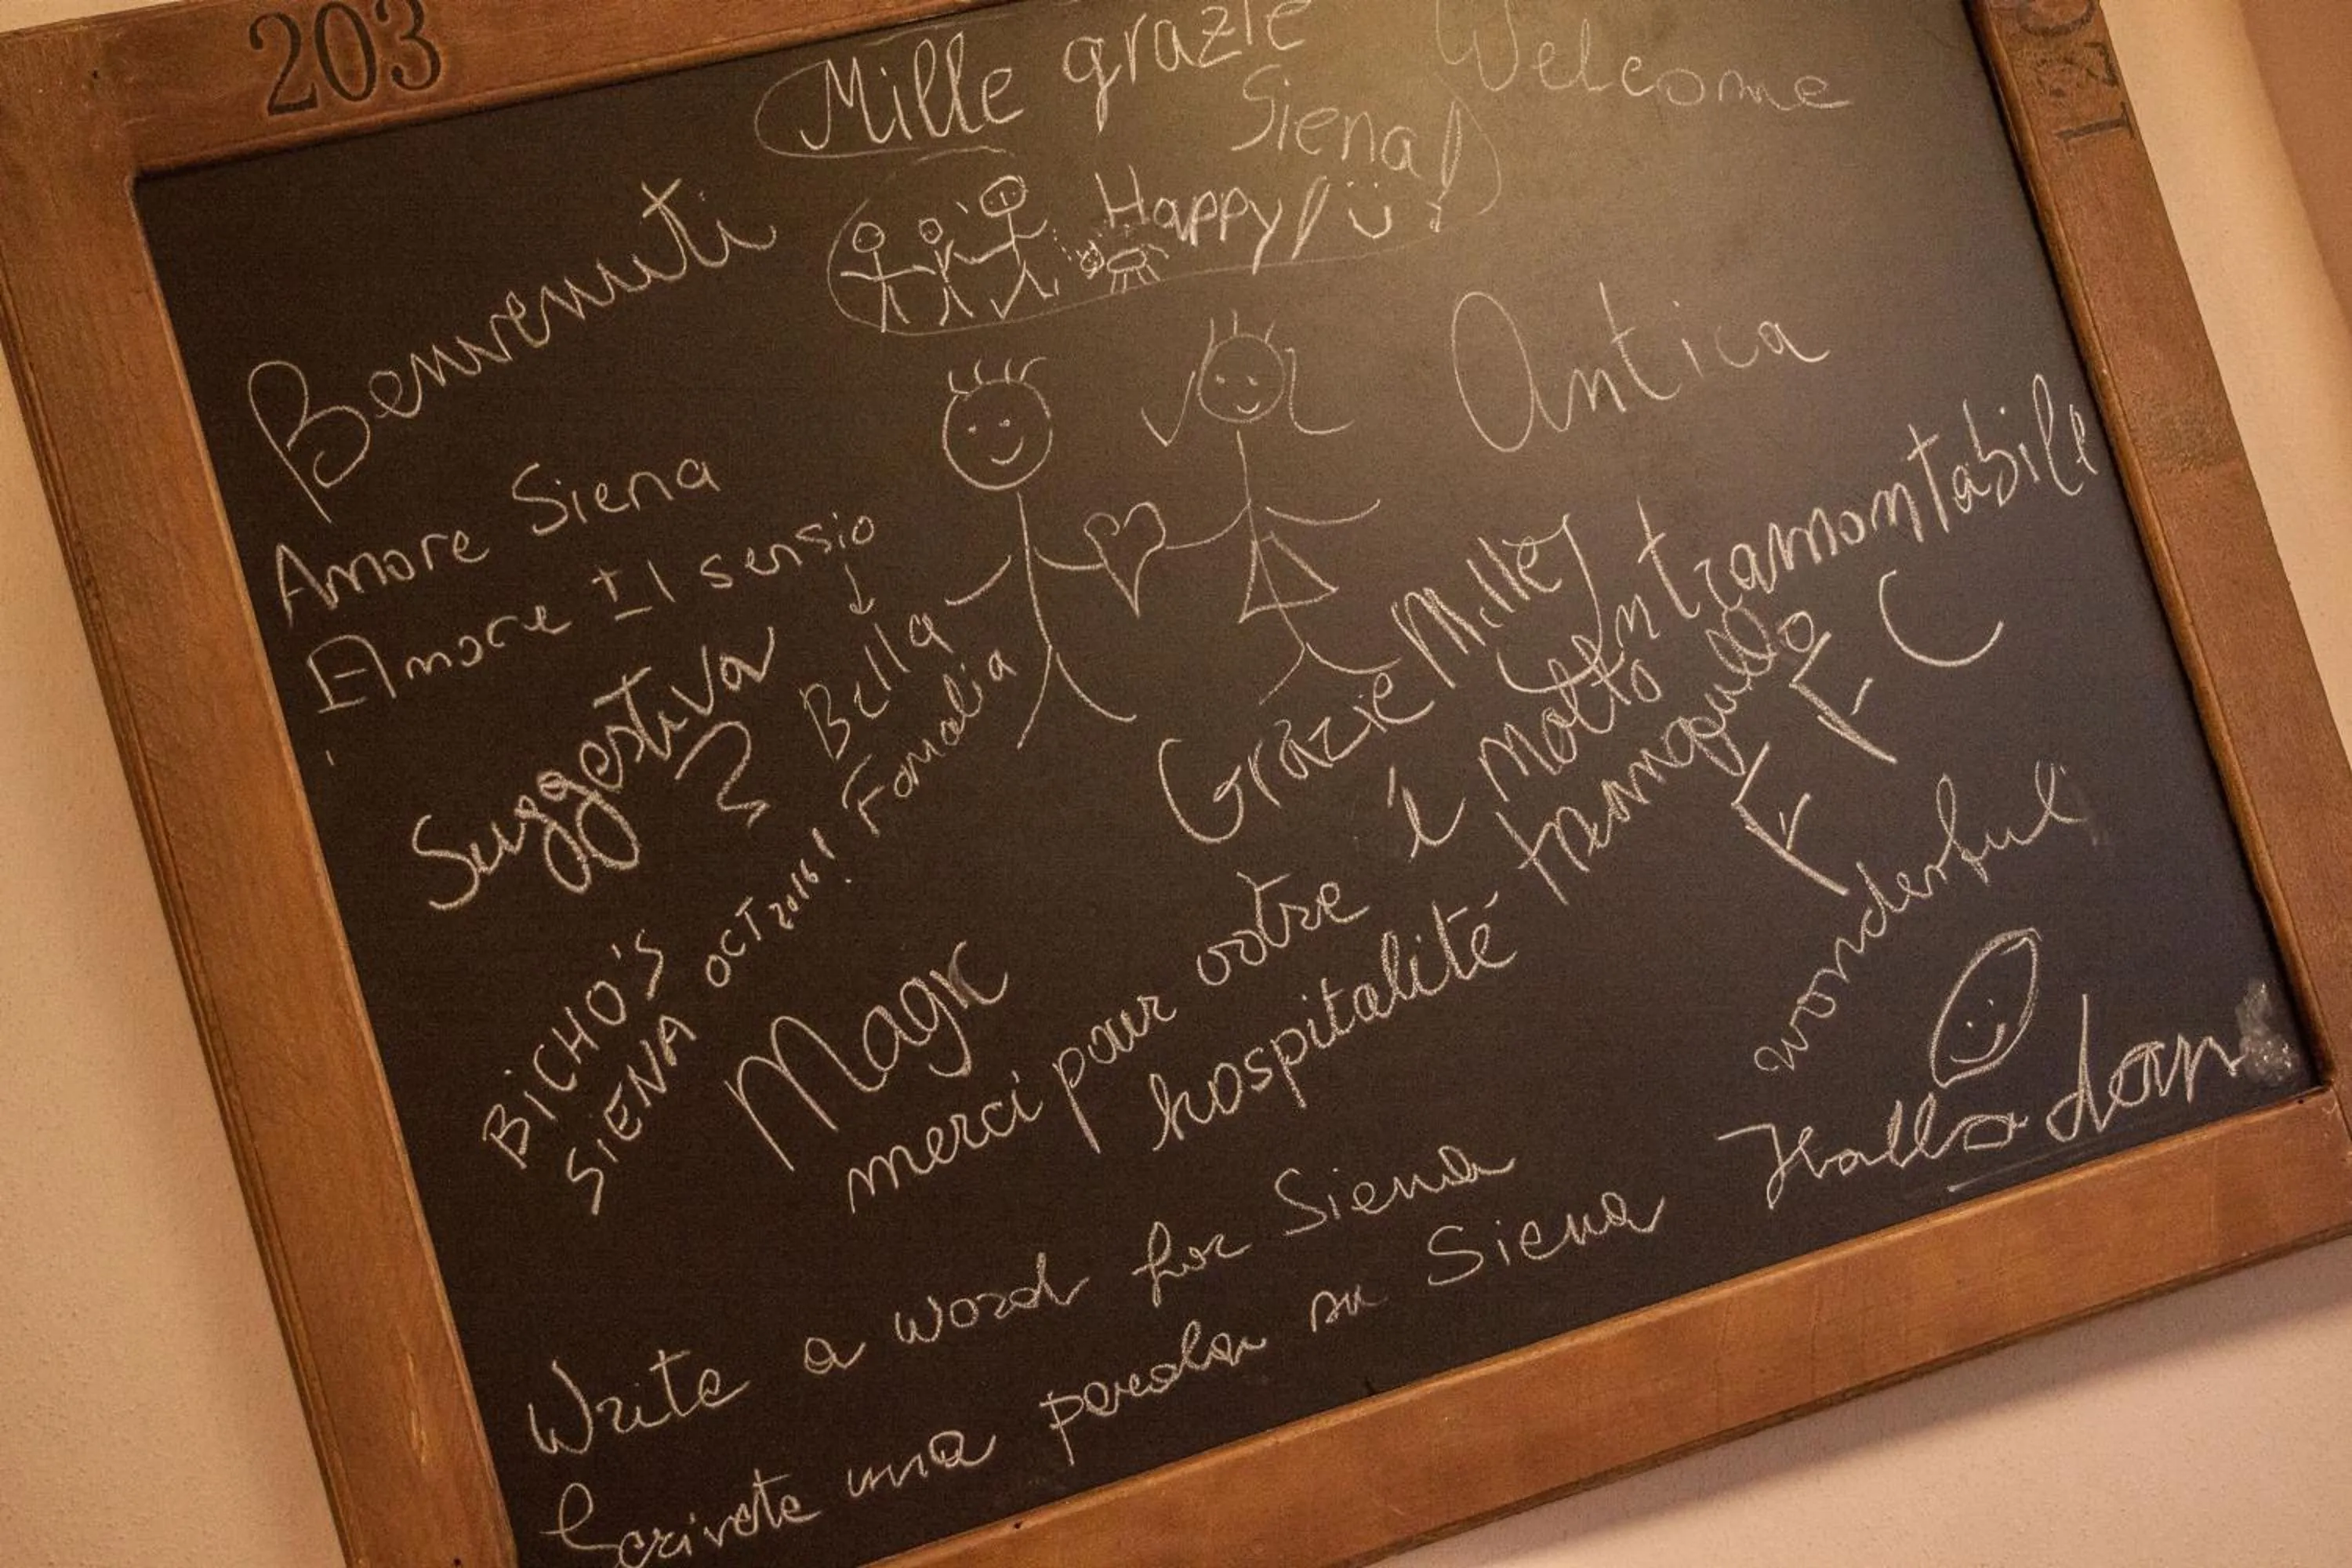 203
Mille grazie
Siena!
Welcome
Happy!
Benvenuti
Antica
Amore Siena
Amore Il sensio
Suggestiva
Bella
Fomalia
Grazie Mille
Intramontabile
è molto
tranquillo
E
F
C
BICHO'S
SIENA OCT 2016!
Magic
merci pour votre
hospitalité
wonderful
Write a word for Siena
Scrivete una parola su Siena